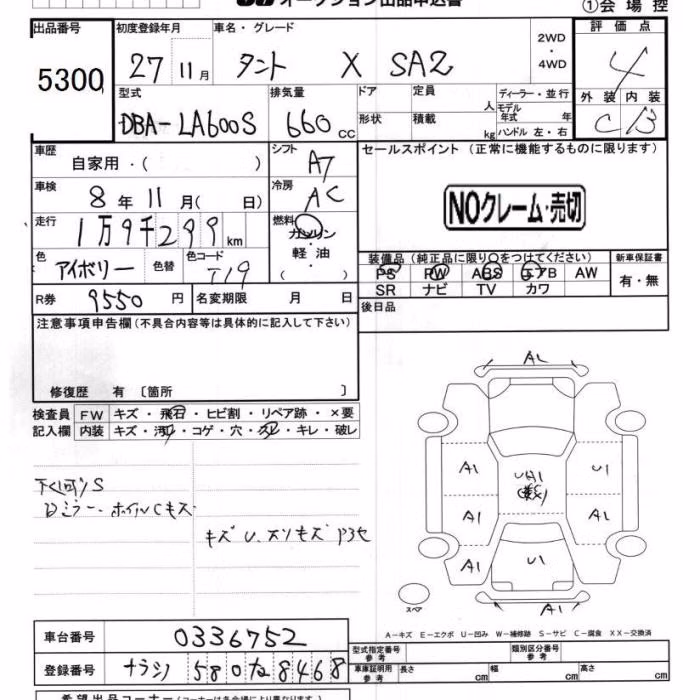 オークション出品申込書
①会場控
出品番号 初度登録年月 車名・グレード 2WD・4WD 評価点
5300 27 11月 タント X SA2 4
型式 排気量 ドア 定員 人 ディーラー・並行 外装 内装
DBA-LA600S 660cc 形状 積載 kg モデル年式 年 C B
ハンドル 左・右
車歴 自家用・( ) シフト A7 セールスポイント (正常に機能するものに限ります)
車検 8年11月( 日) 冷房 AC
NOクレーム・売切
走行 1万9千299km 燃料 ガソリン・軽油・( )
色 アイボリー 色替 色コード T19
装備品 (純正品に限り○をつけてください) 新車保証書
PS PW ABS エアB AW 有・無
SR ナビ TV カワ
R券 9550円 名変期限 月 日 後日品
注意事項申告欄 (不具合内容等は具体的に記入して下さい)
修復歴 有 〔箇所 〕
AL
検査員 FW キズ・飛石・ヒビ割・リペア跡・×要
記入欄 内装 キズ・汚れ・コゲ・穴・スレ・キレ・破レ
A1 U1
A1 A1
A1 U1
下回りS
Dミラー、ホイルCキズ
キズ U、スリキズ
A1
スペア
A-キズ E-エクボ U-凹み W-補修跡 S-サビ C-腐食 XX-交換済
車台番号 0336752
型式指定番号 参考 類別区分番号 参考
登録番号 ナラシノ 580 な 8468
車庫証明用 参考 長さ cm 幅 cm 高さ cm
希望出品コーナー